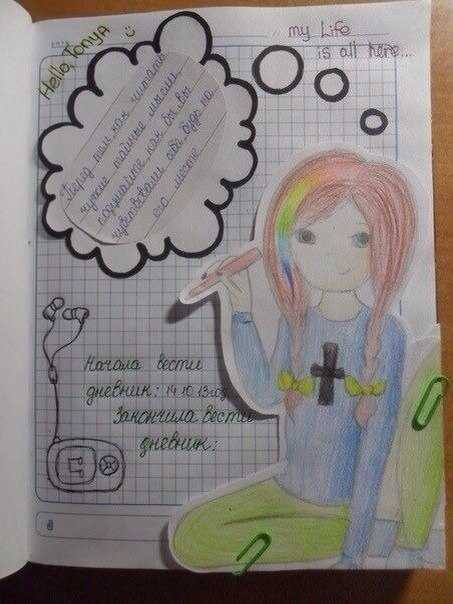 Hello, Tonya
my Life
is all here...
Перед тем как читать
чужие тайные мысли
подумайте, как бы вы
чувствовали себя будь на
его месте
Начала вести
дневник: 14.10.13год
Закончила вести
дневник: